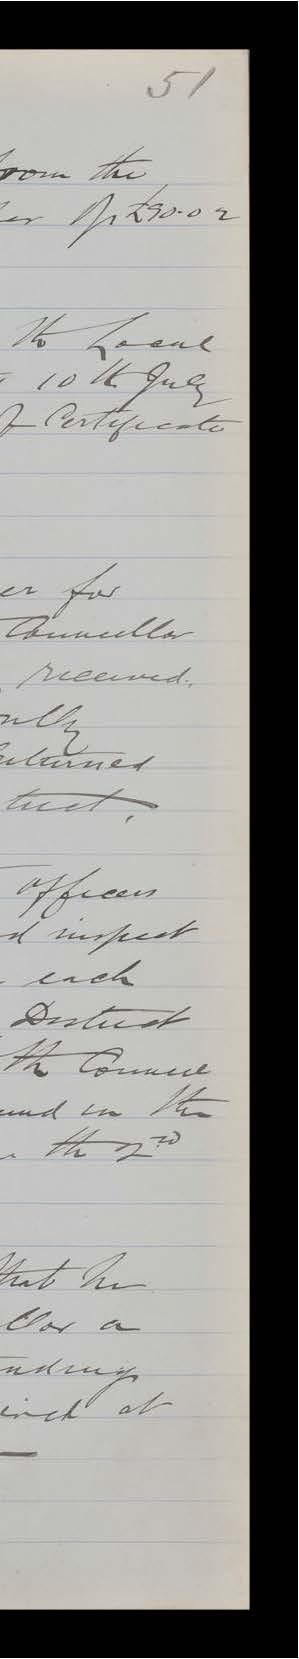 51
from the
of £90.0.2
the Local
10th July
of Certificate
er for
Councillor
received.
ully
returned
trict.
officers
d inspect
each
District
the Council
und in the
the 2nd
that he
llor a
nding
ired at